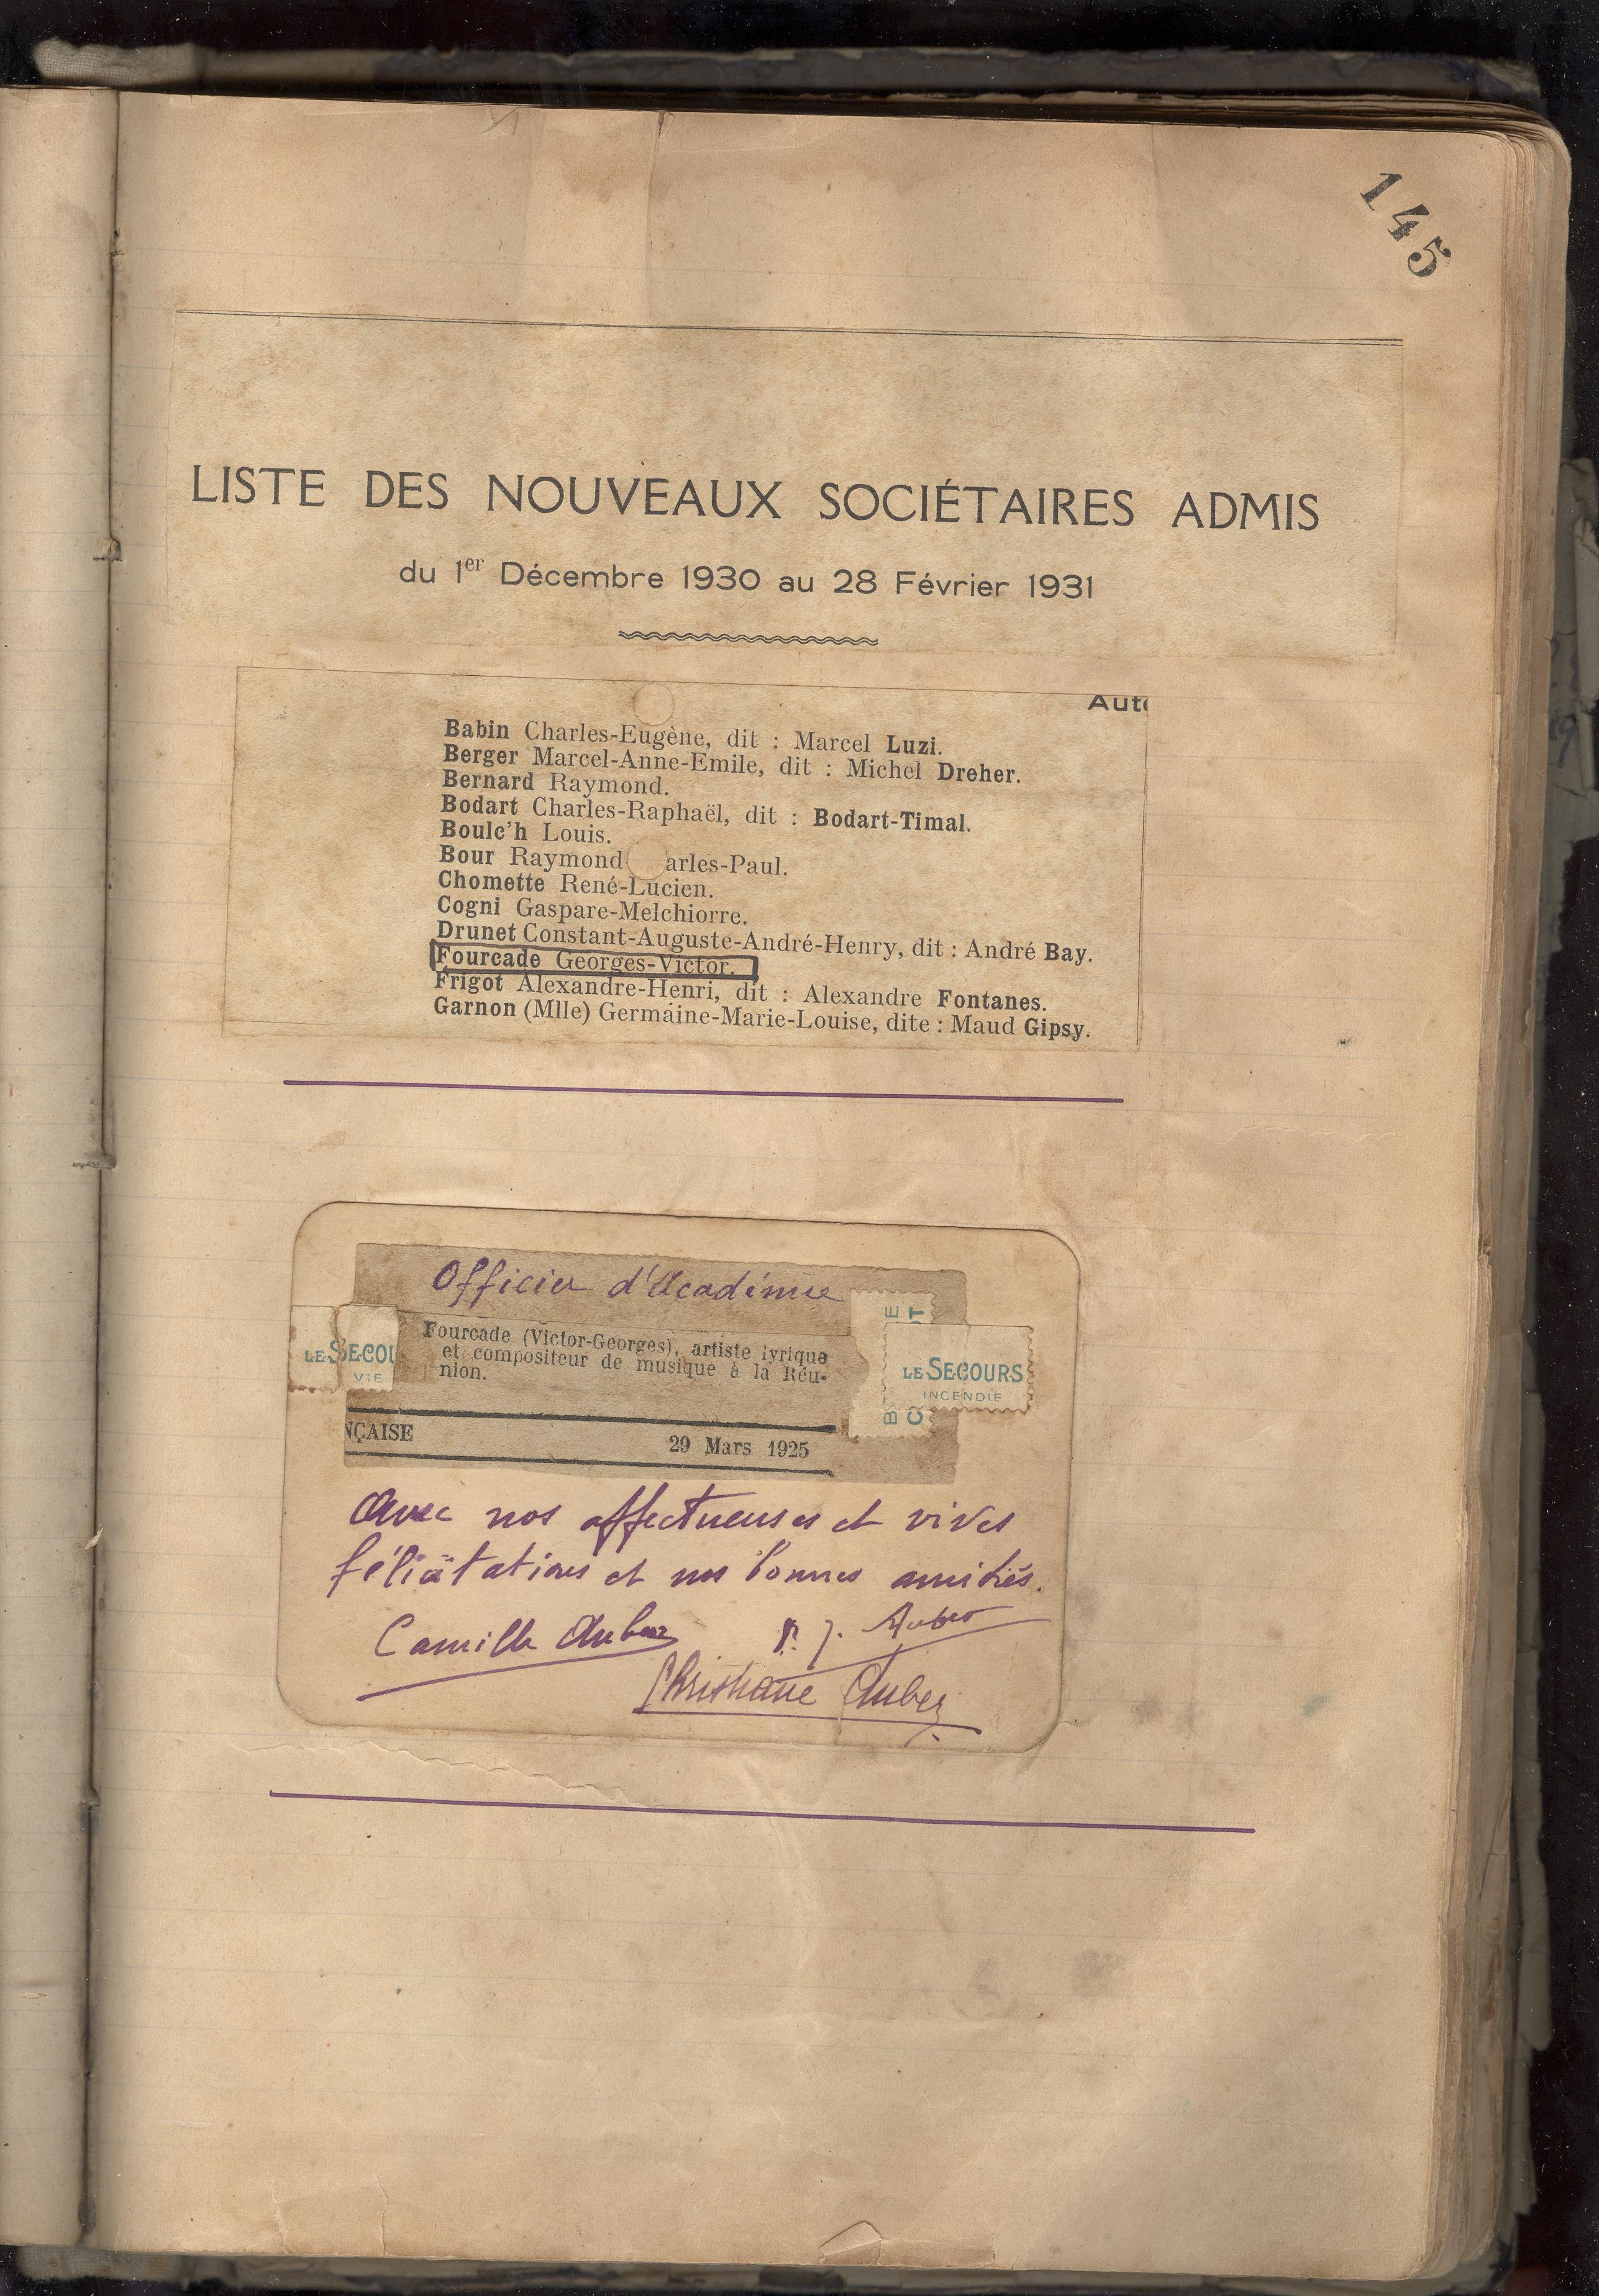 145
LISTE DES NOUVEAUX SOCIÉTAIRES ADMIS
du 1er Décembre 1930 au 28 Février 1931
Aut
Babin Charles-Eugène, dit : Marcel Luzi.
Berger Marcel-Anne-Emile, dit : Michel Dreher.
Bernard Raymond.
Bodart Charles-Raphaël, dit : Bodart-Timal.
Boulc'h Louis.
Bour Raymond arles-Paul.
Chomette René-Lucien.
Cogni Gaspare-Melchiorre.
Drunet Constant-Auguste-André-Henry, dit : André Bay.
Fourcade Georges-Victor.
Frigot Alexandre-Henri, dit : Alexandre Fontanes.
Garnon (Mlle) Germaine-Marie-Louise, dite : Maud Gipsy.
Officier d'Académie
Fourcade (Victor-Georges), artiste lyrique
et compositeur de musique à la Réu-
nion.
LE SECOU
VIE
LE SECOURS
INCENDIE
NÇAISE 29 Mars 1925
Avec nos affectueuses et vives
félicitations et nos bonnes amitiés.
Camille Auber
P. J. Auber
Christiane Auber